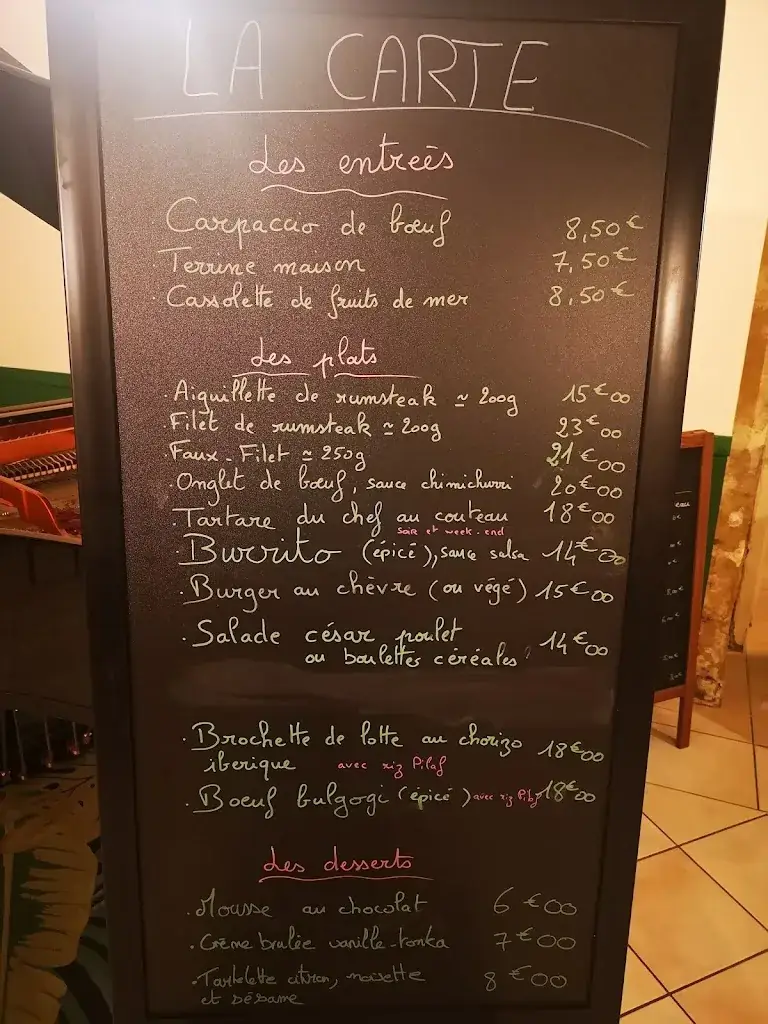 LA CARTE
Les entreés
Carpaccio de bœuf 8,50€
Terrine maison 7,50€
Cassolette de fruits de mer 8,50€
Les plats
Aiguillette de rumsteak ≃ 200g 15€00
Filet de rumsteak ≃ 200g 23€00
Faux-Filet ≃ 250g 21€00
Onglet de bœuf, sauce chimichurri 20€00
Tartare du chef au couteau 18€00
soir et week-end
Burrito (épicé), sauce salsa 14€00
Burger au chèvre (ou végé) 15€00
Salade césar poulet
ou boulettes céréales 14€00
Brochette de lotte au chorizo 18€00
iberique avec riz Pilaf
Boeuf bulgogi (épicé) avec riz Pilaf 18€00
Les desserts
Mousse au chocolat 6€00
Crème brulée vanille-tonka 7€00
Tartelette citron, noisette 8€00
et sésame